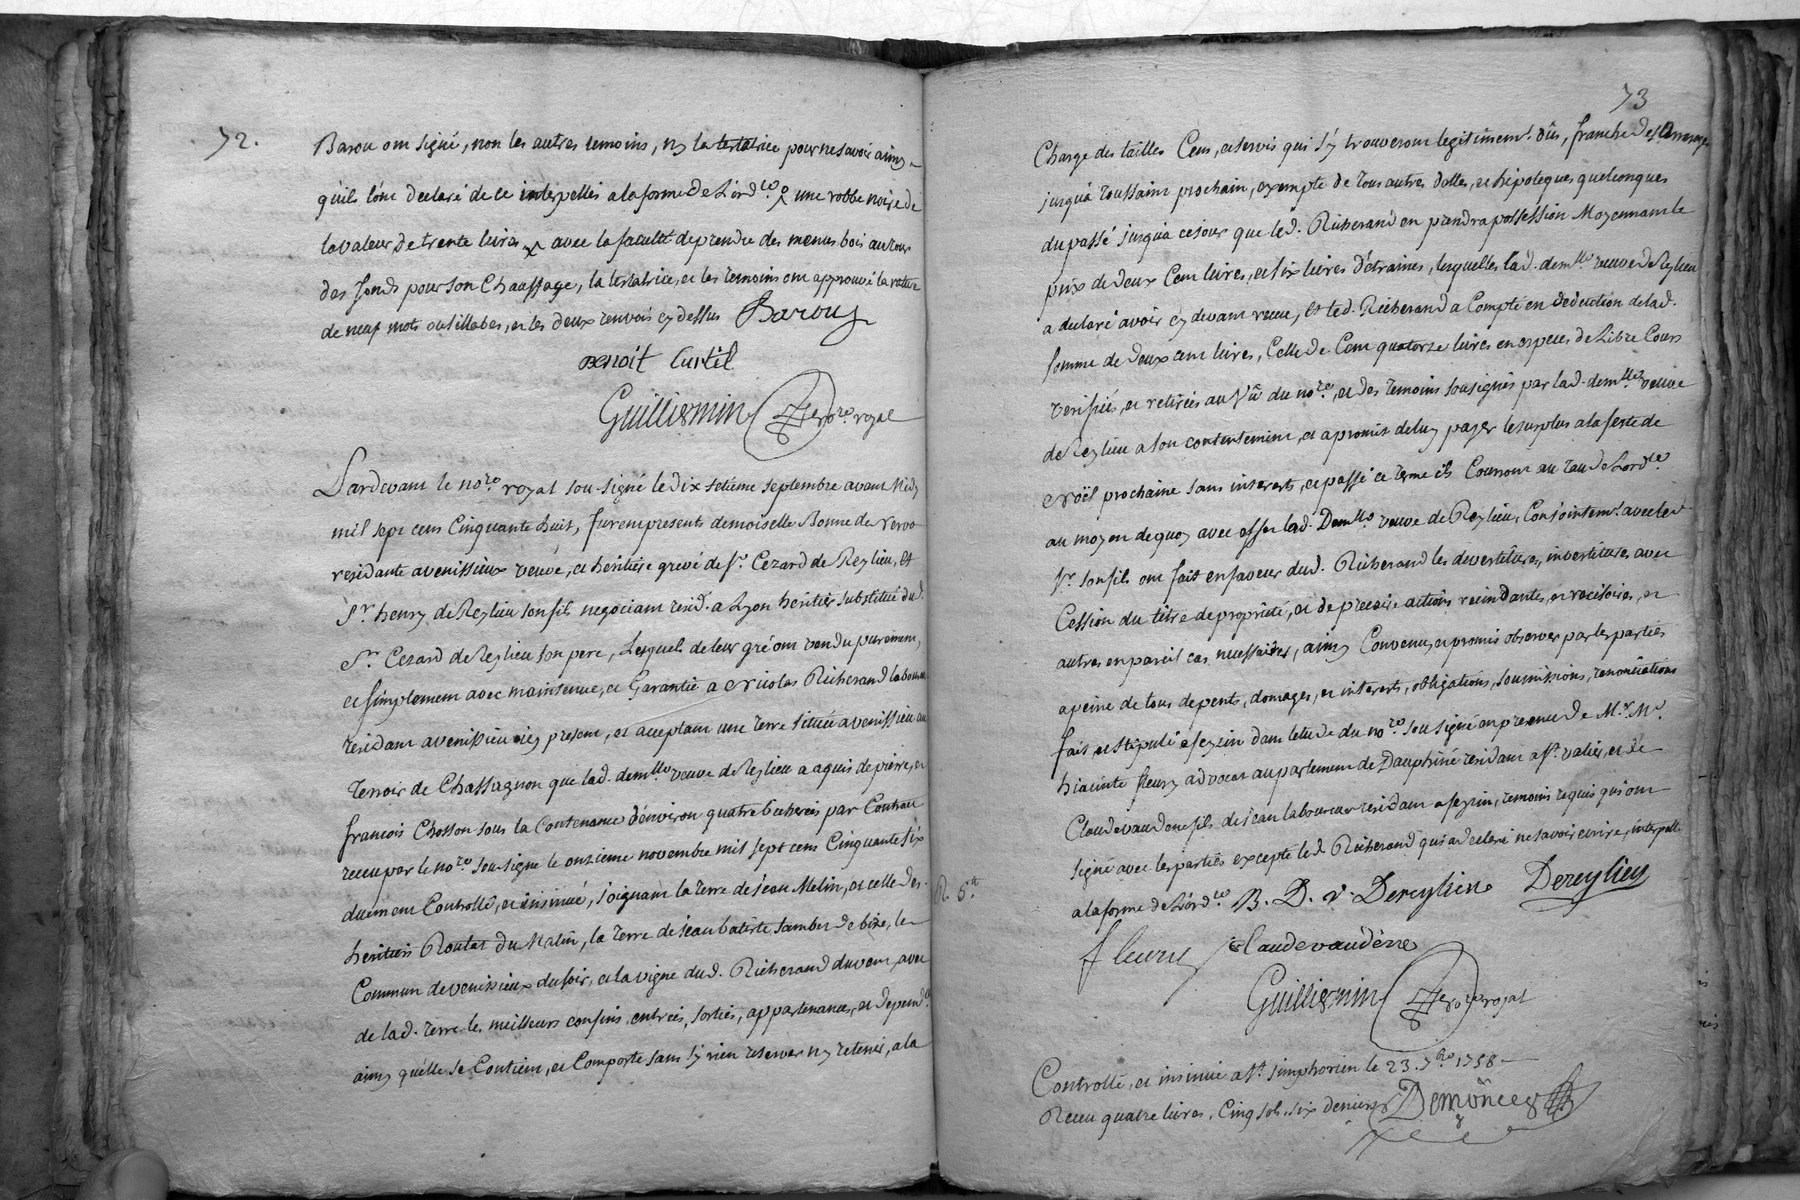 72.
Barou ont signé, non les autres temoins, ny la testatrice pour ne savoir ainsy
qu'ils l'ont declaré de ce interpellés a la forme de L'ord.ce une robbe noire de
la valeur de trente livres avec la faculté de prendre des menus bois autour
des fonds pour son Chauffage, la testatrice, et les temoins ont approuvé la rature
de neuf mots ou sillabes, et les deux renvois cy dessus Barou
Benoit Curtil
Guilliermin no.re royal
Pardevant le no.re royal sousigné le dix setième septembre avant Midy
mil sept cens Cinquante huit, furent presents demoiselle Bonne de vervo
residante a venissieux veuve, et héritière grevé de S.r Cezard de Reylieu, Et
S.r henry de Reylieu son fils negociant resid. a Lyon héritier substitué dud.
S.r Cezard de Reylieu son pere, Lesquels de leur gré ont vendu purement,
et simplement avec maintenue, et Garantie a Nicolas Richerand laboureur
residant a venissieu icy present, et acceptant une terre située a venissieu au
terroir de Chassagnon que lad. dem.lle veuve de Reylieu a aquis de pierre, et
françois Chosson sous la Contenance d'environ quatre bicherées par Contrat
receu par le no.re sousigné le onzieme novembre mil sept cens Cinquante six
duement Controllé, et insinué, joignant la terre de jean Melin, et celle des
héritiers Roulat du Matin, la terre de jean batiste jamber de bize, le
Commun de venissieux du soir, et la vigne dud. Richerand du vent, avec
de lad. terre les meilleurs confins, entrées, sorties, appartenances, et depend.ces
ainsy qu'elle se Contient, et Comporte sans s'y rien reserver ny retenir, a la
R. 6.tt
73
Charge des tailles Cens, et servis qui s'y trouveront legitimem.t dûs, franche des arrerages
jusqu'a toussaint prochain, exempte de tous autres dettes, et hipoteques quelconques
du passé jusqua ce jour que led. Richerand en prendra possession Moyennant le
prix de deux Cent livres, et six livres d'étraines, lesquelles lad. dem.lle veuve de Reylieu
a declaré avoir cy devant receu, Et led. Richerand a Compté en deduction de lad.
somme de deux cent livres, Celle de Cent quatorze livres en especes de Libre Cours
verifiées, et retirées au Vû du no.re, et des temoins sousignés par lad. dem.lle veuve
de Reylieu a son contentement, et a promis de luy payer le surplus a la feste de
Noël prochaine sans interets, et passé ce terme ils Courront au taux de L'ord.ce
au moyen de quoy avec effet lad. Dem.lle veuve de Reylieu, Conjointem.t avec led.
S.r son fils ont fait en faveur dud. Richerand les devestitures, investitures avec
Cession du titre de proprieté, et de precaire actions recindantes, et recisoires, et
autres en pareil cas necessaires, ainsy Convenu, et promis observer par les parties
a peine de tous depents, domages, et interets, obligations, soumissions, renonciations
fait, et stipulé a feyzin dans l'etude du no.re sousigné en presence de M.r M.e
hiacinte fleury advocat au parlement de Dauphiné residant a S.t valier, et de
Claude vaudene fils de jean laboureur residant a feyzin, temoins requis qui ont
signé avec les parties excepté led. Richerand qui a declaré ne savoir ecrire, interpellé
a la forme de L'ord.ce B. D. v. Dereylieu Dereylieu
fleury Claudevaudene
Guilliermin no.re royal
Controllé, et insinué a S.t simphorien le 23. 7bre 1758
Receu quatre livres, Cinq sols, six deniers Demoncey